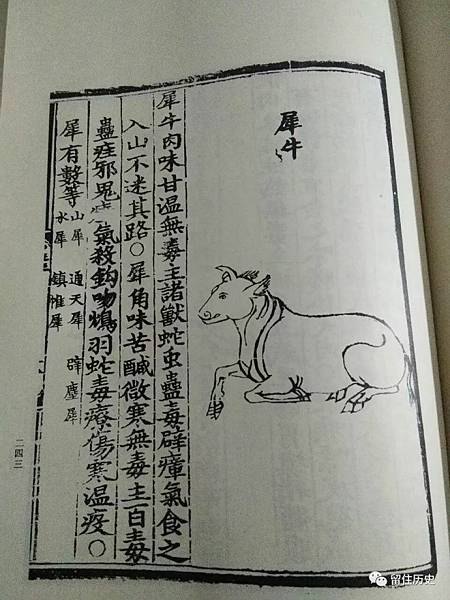 犀牛
犀牛肉味甘温無毒主諸獸蛇虫蠱毒辟瘴氣食之
入山不迷其路○犀角味苦醎微寒無毒主百毒
蠱疰邪鬼氣殺鈎吻鴆羽蛇毒療傷寒温疫○
犀有數等
山犀 通天犀 辟塵犀
水犀 鎮帷犀
二四三
留住历史